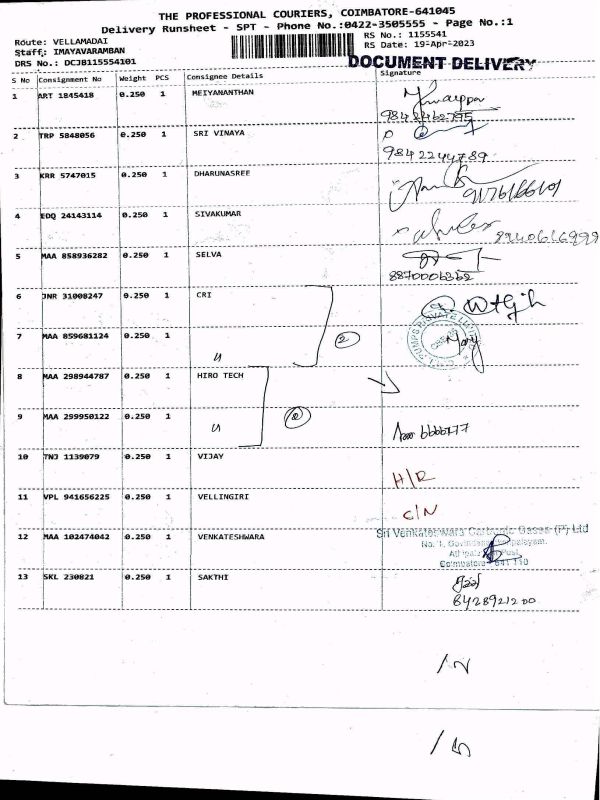 THE PROFESSIONAL COURIERS, COIMBATORE-641045
Delivery Runsheet - SPT - Phone No.:0422-3505555 - Page No.:1
Route: VELLAMADAI
RS No.: 1155541
Staff: IMAYAVARAMBAN
RS Date: 19-Apr-2023
DRS No.: DCJB1155554101
DOCUMENT DELIVERY
S No Consignment No Weight PCS Consignee Details Signature
1 ART 1845418 0.250 1 MEIYANANTHAN
9842462795
2 TRP 5848056 0.250 1 SRI VINAYA
9842244789
3 KRR 5747015 0.250 1 DHARUNASREE
4 EDQ 24143114 0.250 1 SIVAKUMAR
8940616999
5 MAA 858936282 0.250 1 SELVA
8870006362
6 JNR 31008247 0.250 1 CRI
7 MAA 859681124 0.250 1 2
8 MAA 298944787 0.250 1 HIRO TECH
9 MAA 299950122 0.250 1
10 TNJ 1139079 0.250 1 VIJAY H/R
11 VPL 941656225 0.250 1 VELLINGIRI C/N
12 MAA 102474042 0.250 1 VENKATESHWARA
Sri Venkateshwara Carbonic Gases (P) Ltd
No. 1,
Post,
Coimbatore - 641 110
13 SKL 230821 0.250 1 SAKTHI
8428921200